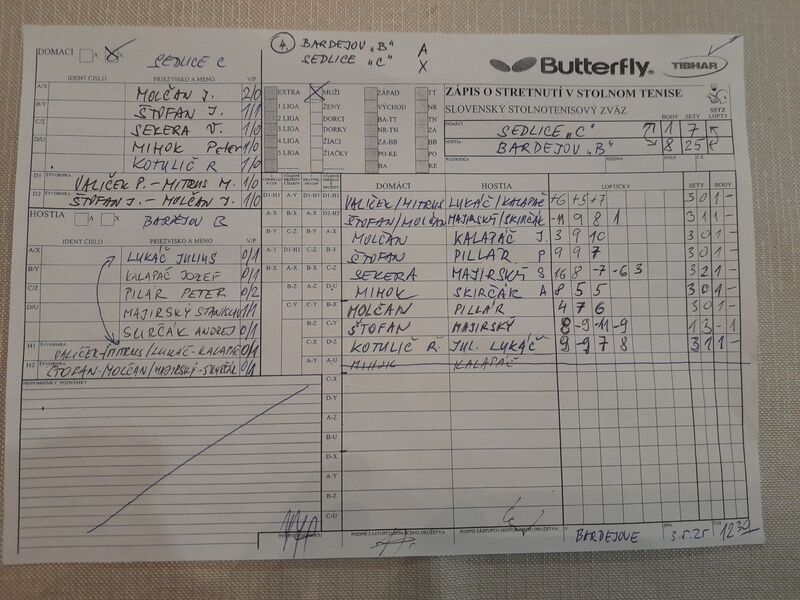 DOMACI A X SEDLICE C
4. BARDEJOV „B" A
SEDLICE „C" X
Butterfly TIBHAR
IDENT.ČÍSLO PRIEZVISKO A MENO V/P
A/X MOLČAN J. 2/0
B/Y ŠTOFAN J. 1/1
C/Z SEKERA V. 1/0
D/U MIHOK Peter 1/0
KOTULIČ R 1/0
D1 ŠTVORHRA VALIČEK P. - MITRUS M. 1/0
D2 ŠTVORHRA ŠTOFAN J. - MOLČAN J. 1/0
EXTRA MUŽI ZÁPAD TT
1.LIGA ŽENY VÝCHOD NR
2.LIGA DORCI BA-TT TN
3.LIGA DORKY NR-TN ZA
4.LIGA ŽIACI ZA-BB BB
5.LIGA ŽIAČKY PO-KE PO
BA KE
ZÁPIS O STRETNUTÍ V STOLNOM TENISE
SLOVENSKÝ STOLNOTENISOVÝ ZVÄZ SSTZ
BODY SETY LOPTY
DOMÁCI SEDLICE „C" 1 7
HOSTIA BARDEJOV „B" 8 25
ROZHODCA SEZÓNA KOLO Č.Z.
HOSTIA A X BARDEJOV B
IDENT ČÍSLO PRIEZVISKO A MENO V/P
A/X LUKÁČ JULIUS 0/1
B/Y KALAPÁČ JOZEF 0/1
C/Z PILÁR PETER 0/2
D/U MAJIRSKÝ STANISLAV 1/1
SKIRČÁK ANDREJ 0/1
H1 ŠTVORHRA VALIČEK/MITRUS/LUKÁČ-KALAPÁČ 0/1
H2 ŠTVORHRA ŠTOFAN-MOLČAN/MAJIRSKÝ-SKIRČÁK 0/1
PRIPOMIENKY, POZNÁMKY
DOMÁCI HOSTIA LOPTIČKY SETY BODY
VALIČEK/MITRUS LUKÁČ/KALAPÁČ +6 +5 +7 3 0 1 -
ŠTOFAN/MOLČAN MAJIRSKÝ/SKIRČÁK -11 9 8 1 3 1 1 -
MOLČAN KALAPÁČ J. 3 9 10 3 0 1 -
ŠTOFAN PILLÁR P 9 9 7 3 0 1 -
SEKERA MAJIRSKÝ S 16 8 -7 -6 3 3 2 1 -
MIHOK SKIRČÁK A 8 5 5 3 0 1 -
MOLČAN PILLÁR 4 7 6 3 0 1 -
ŠTOFAN MAJIRSKÝ 8 -9 -11 -9 1 3 - 1
KOTULIČ R. JUL. LUKÁČ 9 -9 7 8 3 1 1 -
MIHOK KALAPÁČ
PODPIS ZÁSTUPCU DOMÁCEHO DRUŽSTVA PODPIS ZÁSTUPCU HOSŤUJÚCEHO DRUŽSTVA V BARDEJOVE DŇA 3.5.25 ČAS 12 30